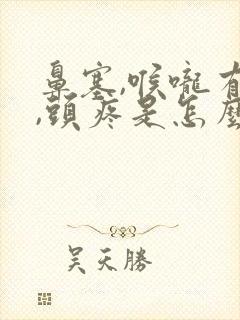 鼻塞,喉嚨有
,頭疼是怎麼
吳天勝